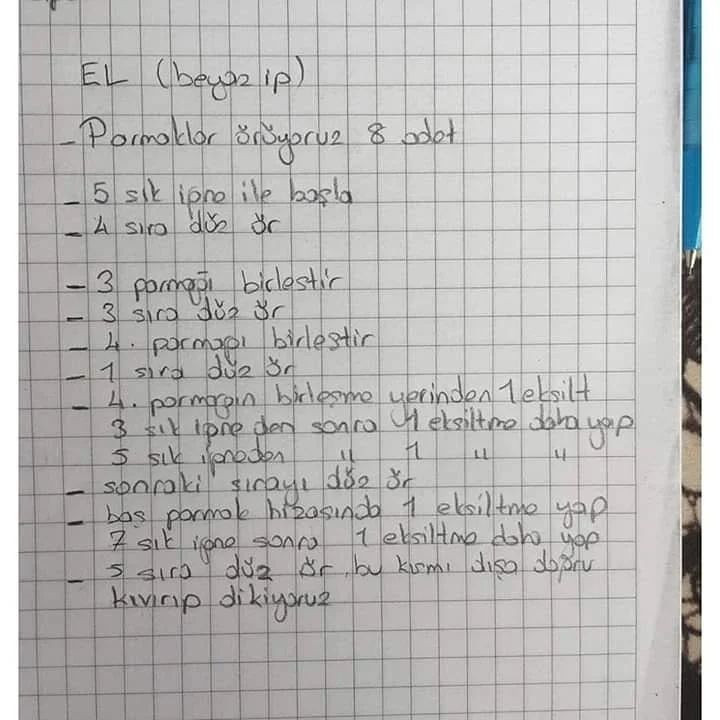 EL (beyaz ip)
- Parmaklar örüyoruz 8 adet
- 5 sık iğne ile başla
- 4 sıra düz ör
- 3 parmağı birleştir
- 3 sıra düz ör
- 4. parmağı birleştir
- 1 sıra düz ör
- 4. parmağın birleşme yerinden 1 eksilt
3 sık iğneden sonra 1 eksiltme daha yap
5 sık iğneden " 1 " "
- sonraki sırayı düz ör
- baş parmak hizasında 1 eksiltme yap
7 sık iğne sonra 1 eksiltme daha yap
- 5 sıra düz ör, bu kısmı dışa doğru
kıvırıp dikiyoruz